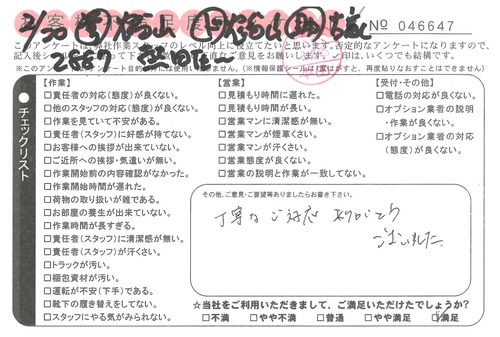 No 046647
このアンケートは、弊社作業スタッフのレベル向上に役立てたいと思います。否定的なアンケートになりますので、
直なご意見をお願いします。✓印は、いくつでも結構です。
2/30
2867
【作業】
□責任者の対応(態度)が良くない。
□他のスタッフの対応(態度)が良くない。
□作業を見ていて不安がある。
□責任者(スタッフ)に好感が持てない。
□お客様への挨拶が出来ていない。
□ご近所への挨拶・気遣いが無い。
□作業開始前の内容確認がなかった。
□作業開始時間が遅れた。
□荷物の取り扱いが雑である。
□お部屋の養生が出来ていない。
□作業時間が長すぎる。
□責任者(スタッフ)に清潔感が無い。
□責任者(スタッフ)が汗くさい。
□トラックが汚い。
□梱包資材が汚い。
□運転が不安(下手)である。
□靴下の履き替えをしてない。
□スタッフにやる気がみられない。
【営業】
□見積もり時間に遅れた。
□見積もり時間が長い。
□営業マンに清潔感が無い。
□営業マンが煙草くさい。
□営業マンが汗くさい。
□営業態度が良くない。
□営業の説明と作業が一致してない。
【受付・その他】
□電話の対応が良くない。
□オプション業者の説明
・作業が良くない。
□オプション業者の対応
(態度)が良くない。
チェックリスト
その他、ご意見・ご要望等ありましたらお書き下さい。
丁寧なご対応ありがとう
ございました
☆当社をご利用いただきまして、ご満足いただけたでしょうか?
□不満 □やや不満 □普通 □やや満足 ☑満足